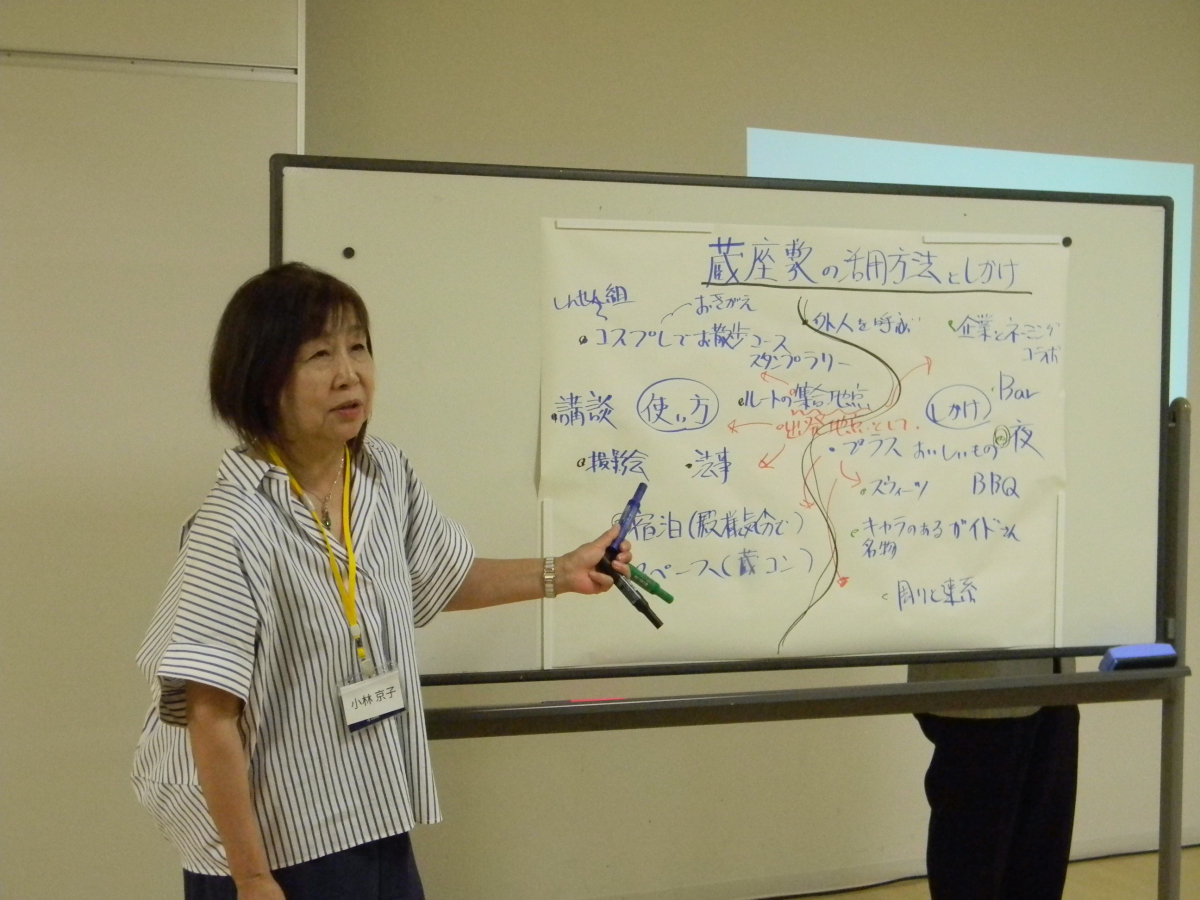 蔵座敷の活用方法としかけ
しんせん組
おきがえ
・コスプレでお散歩コース
スタンプラリー
・講談
使い方
・ルートの集合地点
出発地点として
・撮影会
・法事
宿泊(殿様気分で)
ペース(蔵コン)
・外人を呼ぶ
・企業とネーミング
コラボ
しかけ
・Bar
・プラス おいしいもの
夜
・スウィーツ
BBQ
・キャラのあるガイドさん
名物
・周りと連系
小林 京子